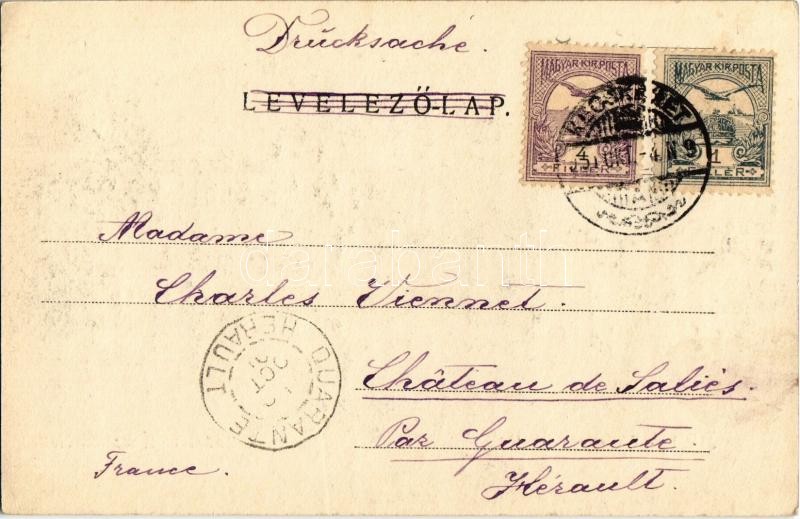 Drucksache.
LEVELEZŐ-LAP.
MAGYAR KIR. POSTA
4
FILLÉR
MAGYAR KIR. POSTA
1
FILLÉR
KECSKEMÉT
Madame
Charles Viennet.
Château de Saliès.
Par Quarante.
Hérault.
France.
QUARANTE
HERAULT
OCT
darabanth